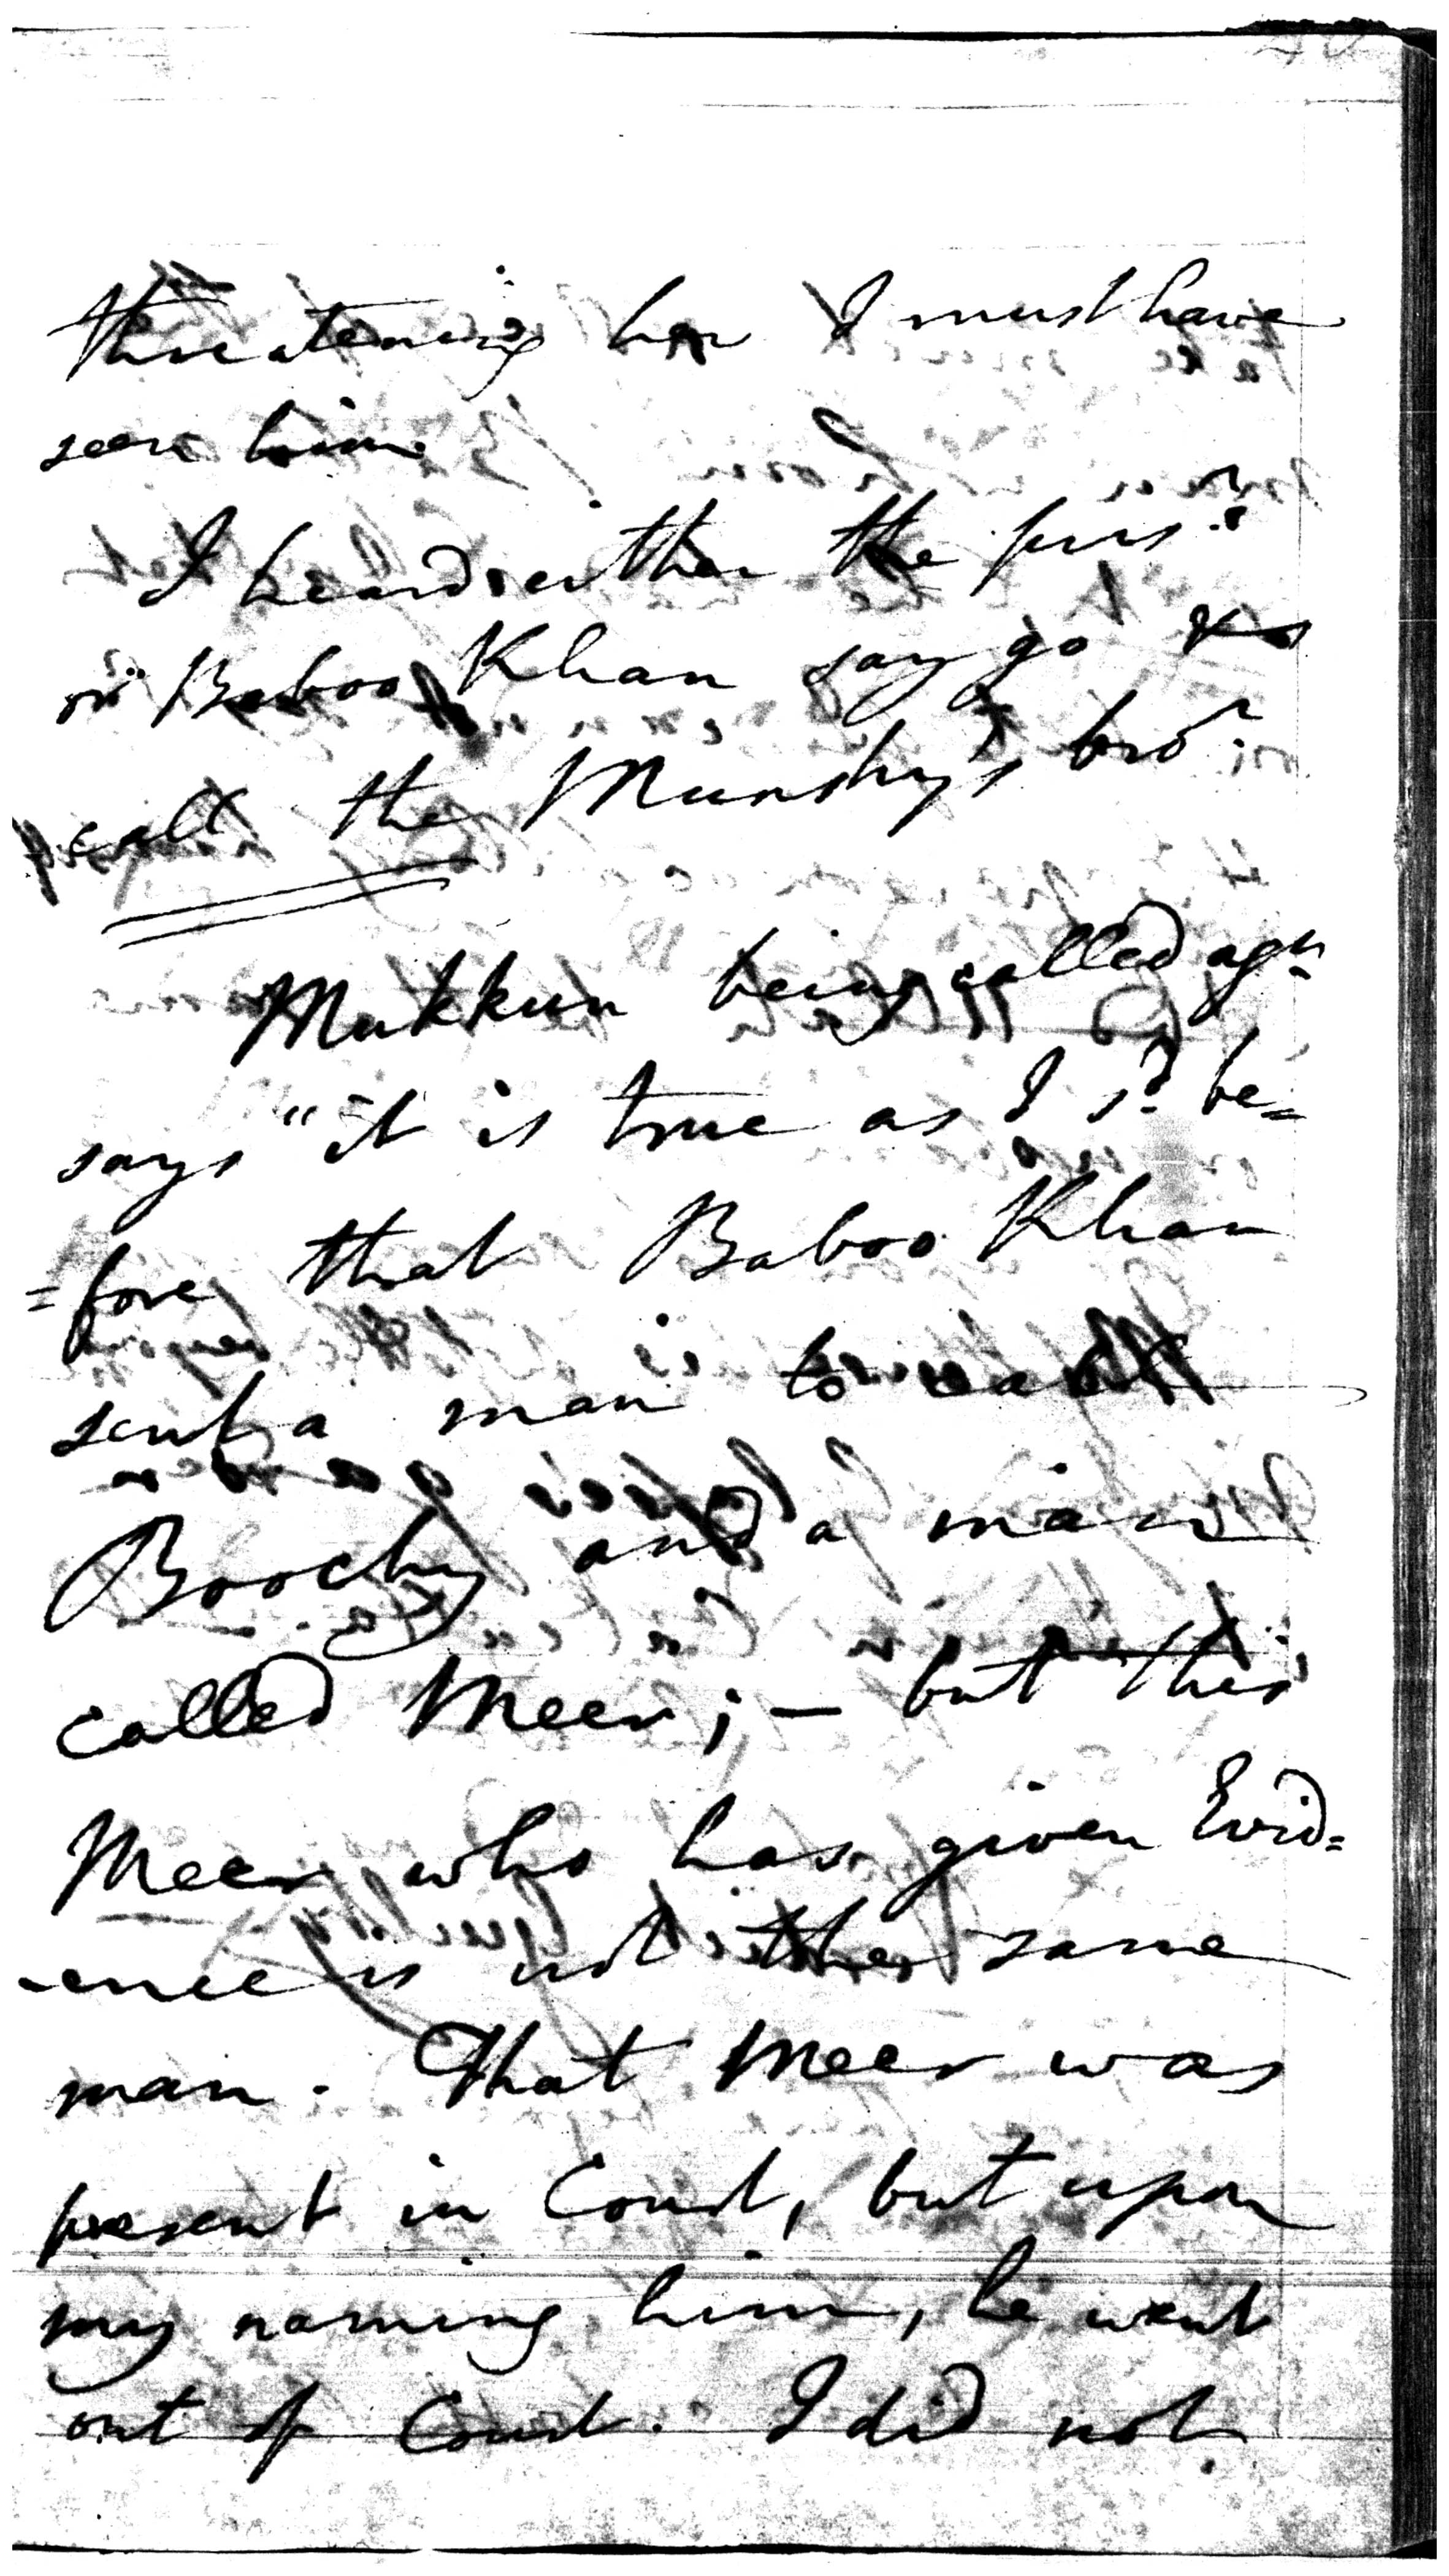 threatening her I must have
seen him
I heard either the prisr
or Baboo Khan say go &
call the Munshy's bror
Mukkun being called agn
says "it is true as I sd be=
=fore that Baboo Khan
sent a man to call
Boochy and a man
called Meer; — but this
Meer who has given Evid=
-ence is not the same
man. That Meer was
present in Court, but upon
my naming him, he went
out of Court. I did not